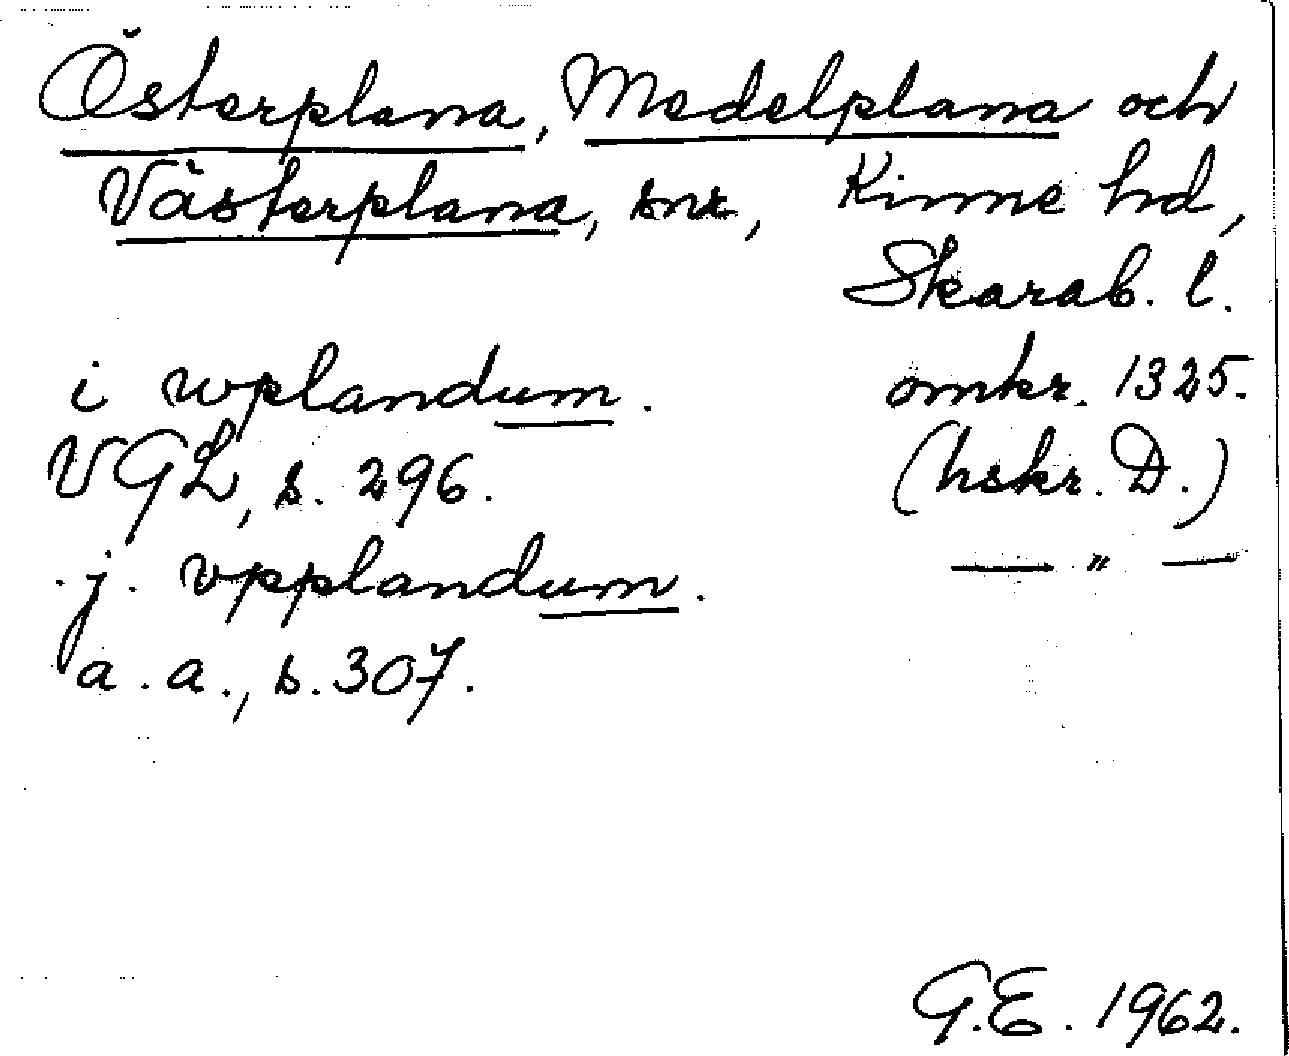 Österplana, Medelplana och
Västerplana, snr, Kinne hd,
Skarab. l.
i wplandum. omkr. 1325.
VGL, s. 296. (hskr. D.)
.j. vpplandum. — " —
a.a., s. 307.
G.E. 1962.